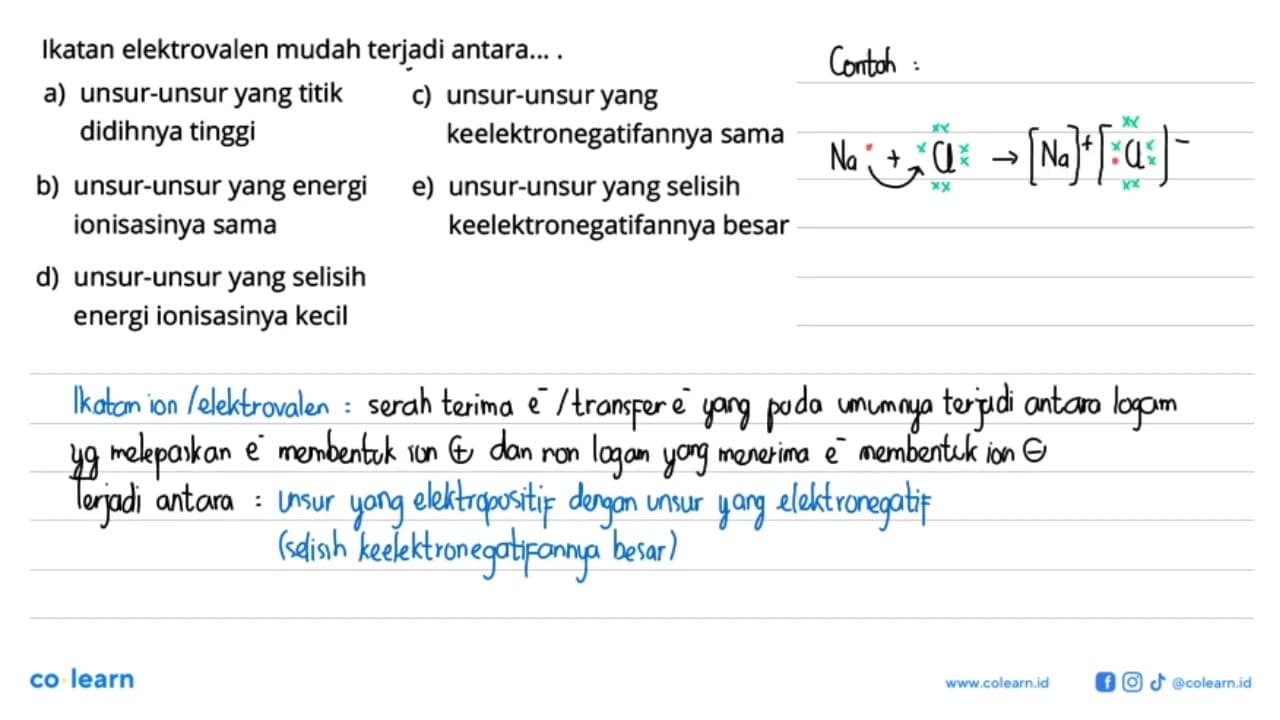 Ikatan elektrovalen mudah terjadi antara... .
a) unsur-unsur yang titik
didihnya tinggi
b) unsur-unsur yang energi
ionisasinya sama
d) unsur-unsur yang selisih
energi ionisasinya kecil
c) unsur-unsur yang
keelektronegatifannya sama
e) unsur-unsur yang selisih
keelektronegatifannya besar
Contoh :
Na + Cl → [Na]+ [Cl]-
Ikatan ion /elektrovalen : serah terima e- /transfer e- yang pada umumnya terjadi antara logam
yg melepaskan e- membentuk ion ⊕ dan non logam yang menerima e- membentuk ion ⊖
Terjadi antara : unsur yang elektropositif dengan unsur yang elektronegatif
(selisih keelektronegatifannya besar)
co learn
www.colearn.id
@colearn.id